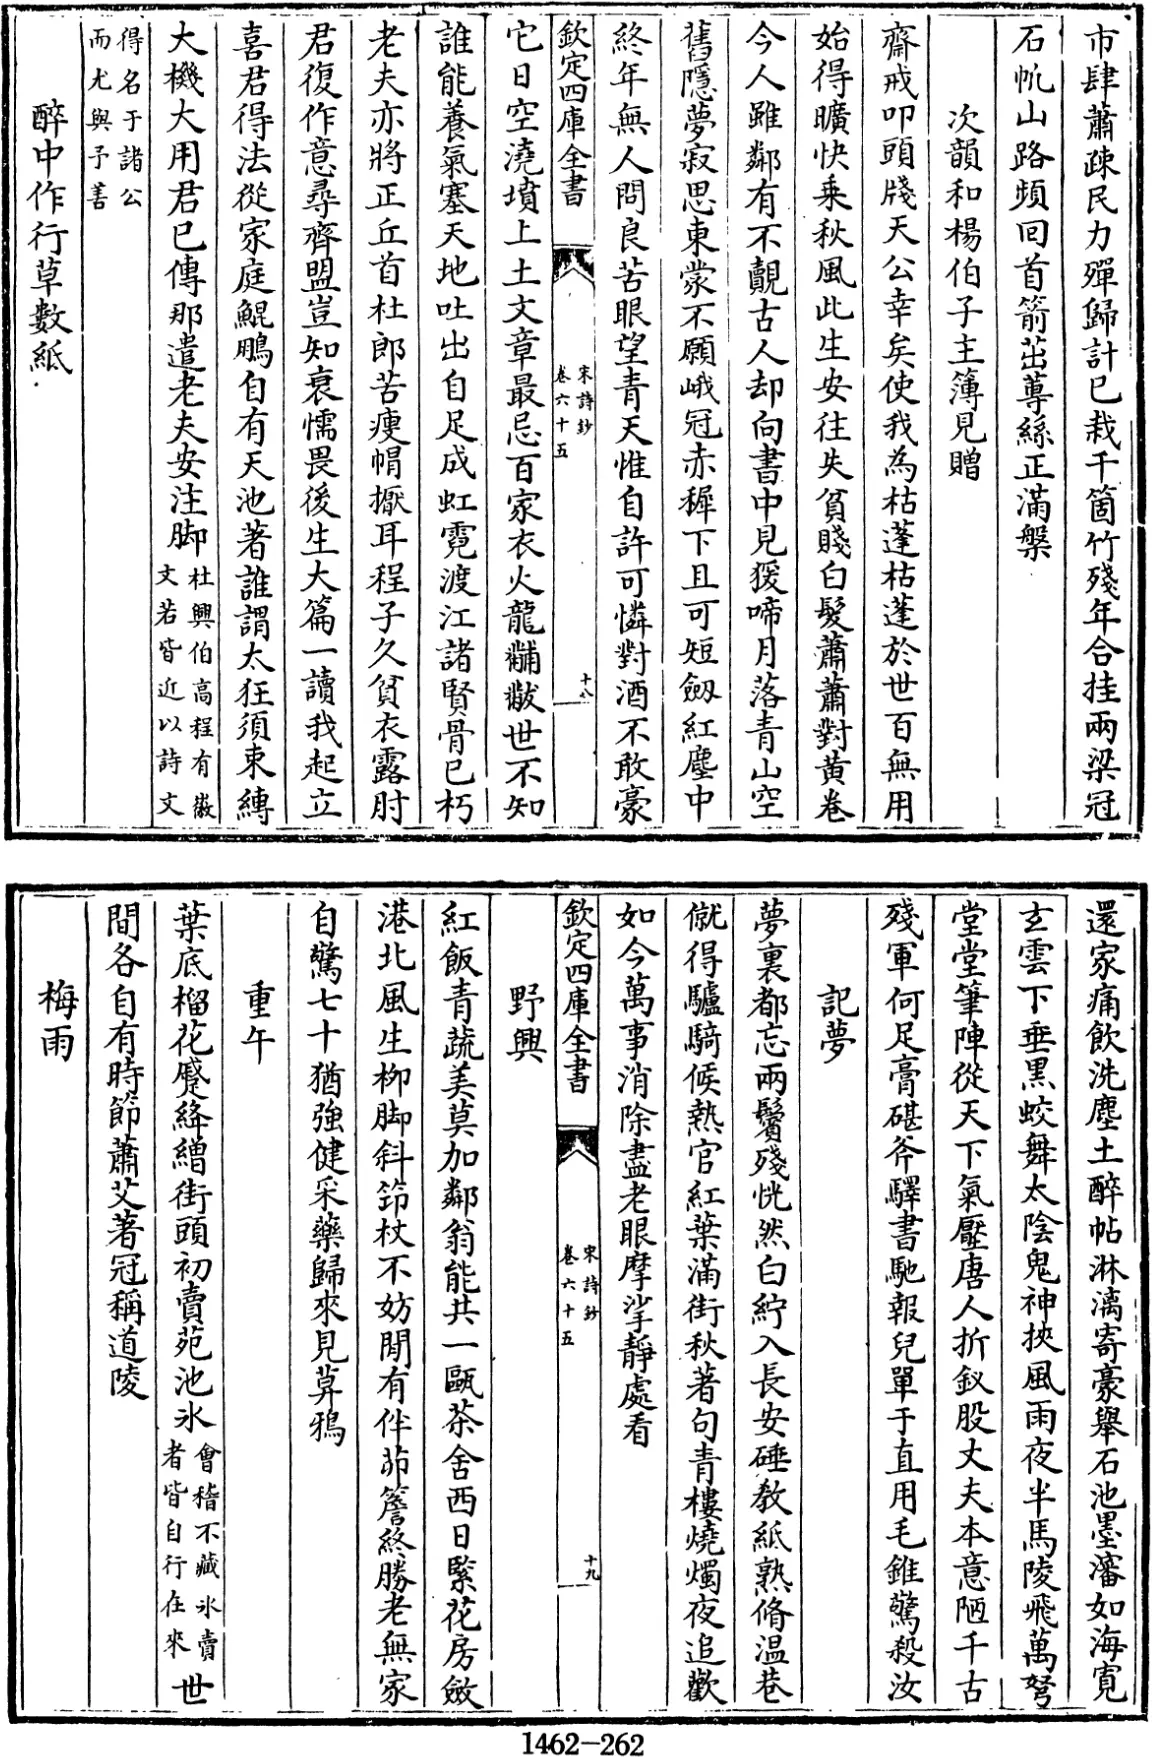 市肆蕭疎民力殫歸計已栽千箇竹殘年合挂兩梁冠
石帆山路頻回首箭茁蓴絲正滿槃
次韻和楊伯子主簿見贈
齋戒叩頭牋天公幸矣使我為枯蓬枯蓬於世百無用
始得曠快乗秋風此生安往失貧賤白髮蕭蕭對黄卷
今人雖鄰有不覿古人却向書中見猨啼月落青山空
舊隱夢寂思東蒙不願峨冠赤墀下且可短劒紅塵中
終年無人問良苦眼望青天惟自許可憐對酒不敢豪
欽定四庫全書
宋詩鈔
卷六十五
十八
它日空澆墳上土文章最忌百家衣火龍黼黻世不知
誰能養氣塞天地吐出自足成虹霓渡江諸賢骨已朽
老夫亦將正丘首杜郎苦瘦帽㩎耳程子久貧衣露肘
君復作意尋齊盟豈知衰懦畏後生大篇一讀我起立
喜君得法從家庭鯤鵬自有天池著誰謂太狂須束縛
大機大用君已傳那遣老夫安注脚
杜興伯高程有徽
文若皆近以詩文
得名于諸公
而尤與予善
醉中作行草數紙
還家痛飲洗塵土醉帖淋漓寄豪舉石池墨瀋如海寛
玄雲下垂黑蛟舞太陰鬼神挾風雨夜半馬陵飛萬弩
堂堂筆陣從天下氣壓唐人折釵股丈夫本意陋千古
殘軍何足膏碪斧驛書馳報兒單于直用毛錐驚殺汝
記夢
夢裏都忘兩鬢殘恍然白紵入長安硾教紙熟脩温巻
僦得驢騎候熱官紅葉滿街秋著句青樓燒燭夜追歡
如今萬事消除盡老眼摩挲靜處看
欽定四庫全書
宋詩鈔
卷六十五
十九
野興
紅飯青蔬美莫加鄰翁能共一甌茶舍西日緊花房斂
港北風生栁脚斜笻杖不妨閒有伴茆簷終勝老無家
自驚七十猶強健采藥歸來見莫鴉
重午
葉底榴花蹙絳繒街頭初賣苑池氷
會稽不藏氷賣
者皆自行在來
世
間各自有時節蕭艾著冠稱道陵
梅雨
1462-262